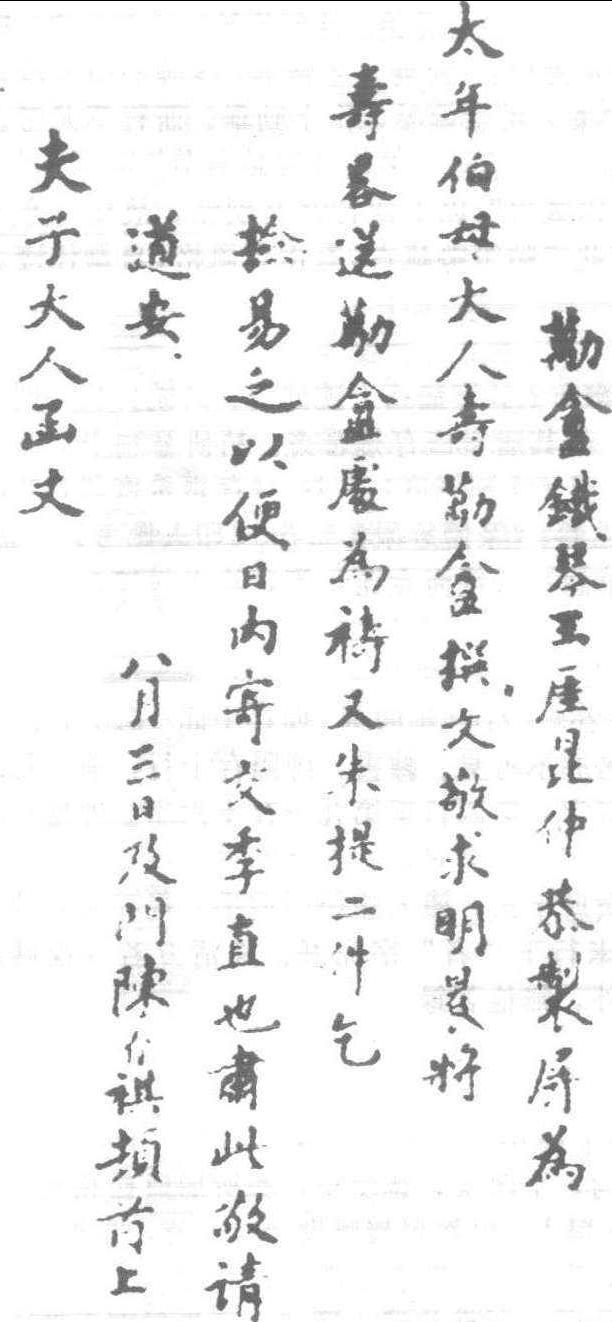 勘盦鐵琴玉厓昆仲恭製屏為
太年伯母大人壽勘盦撰文敬求明晨將
壽畧送勘盦處為禱又朱提二件乞
撿易之以便日内寄交季直也肅此敬請
道安
夫子大人函丈
八月三日及門陳介祺頓首上